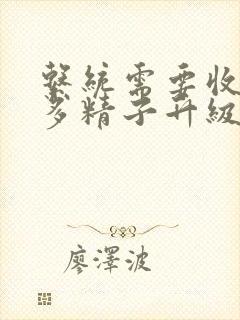 繫統需要收
多精子升級
廖澤波